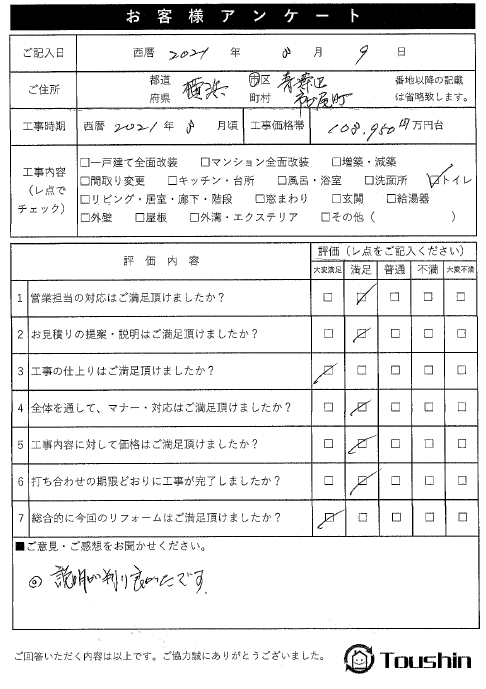 お客様アンケート
ご記入日 西暦 2021 年 8 月 9 日
ご住所 都道府県 横浜 市区町村 青葉区 番地以降の記載は省略致します。
工事時期 西暦 2021 年 8 月頃 工事価格帯 108,950円 万円台
工事内容(レ点でチェック)
□一戸建て全面改装 □マンション全面改装 □増築・減築
□間取り変更 □キッチン・台所 □風呂・浴室 □洗面所 ☑トイレ
□リビング・居室・廊下・階段 □窓まわり □玄関 □給湯器
□外壁 □屋根 □外溝・エクステリア □その他( )
評価内容 評価(レ点をご記入ください)
大変満足 満足 普通 不満 大変不満
1 営業担当の対応はご満足頂けましたか? □ ☑ □ □ □
2 お見積りの提案・説明はご満足頂けましたか? □ ☑ □ □ □
3 工事の仕上りはご満足頂けましたか? ☑ □ □ □ □
4 全体を通して、マナー・対応はご満足頂けましたか? □ ☑ □ □ □
5 工事内容に対して価格はご満足頂けましたか? □ ☑ □ □ □
6 打ち合わせの期限どおりに工事が完了しましたか? □ ☑ □ □ □
7 総合的に今回のリフォームはご満足頂けましたか? ☑ □ □ □ □
■ご意見・ご感想をお聞かせください。
◎ 説明が判り良かったです.
ご回答いただく内容は以上です。ご協力誠にありがとうございました。
Toushin